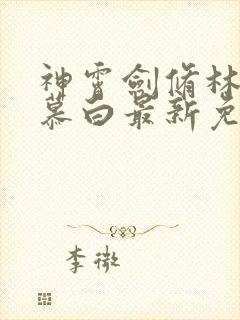 神霄剑脩林
慕白最新免
李微